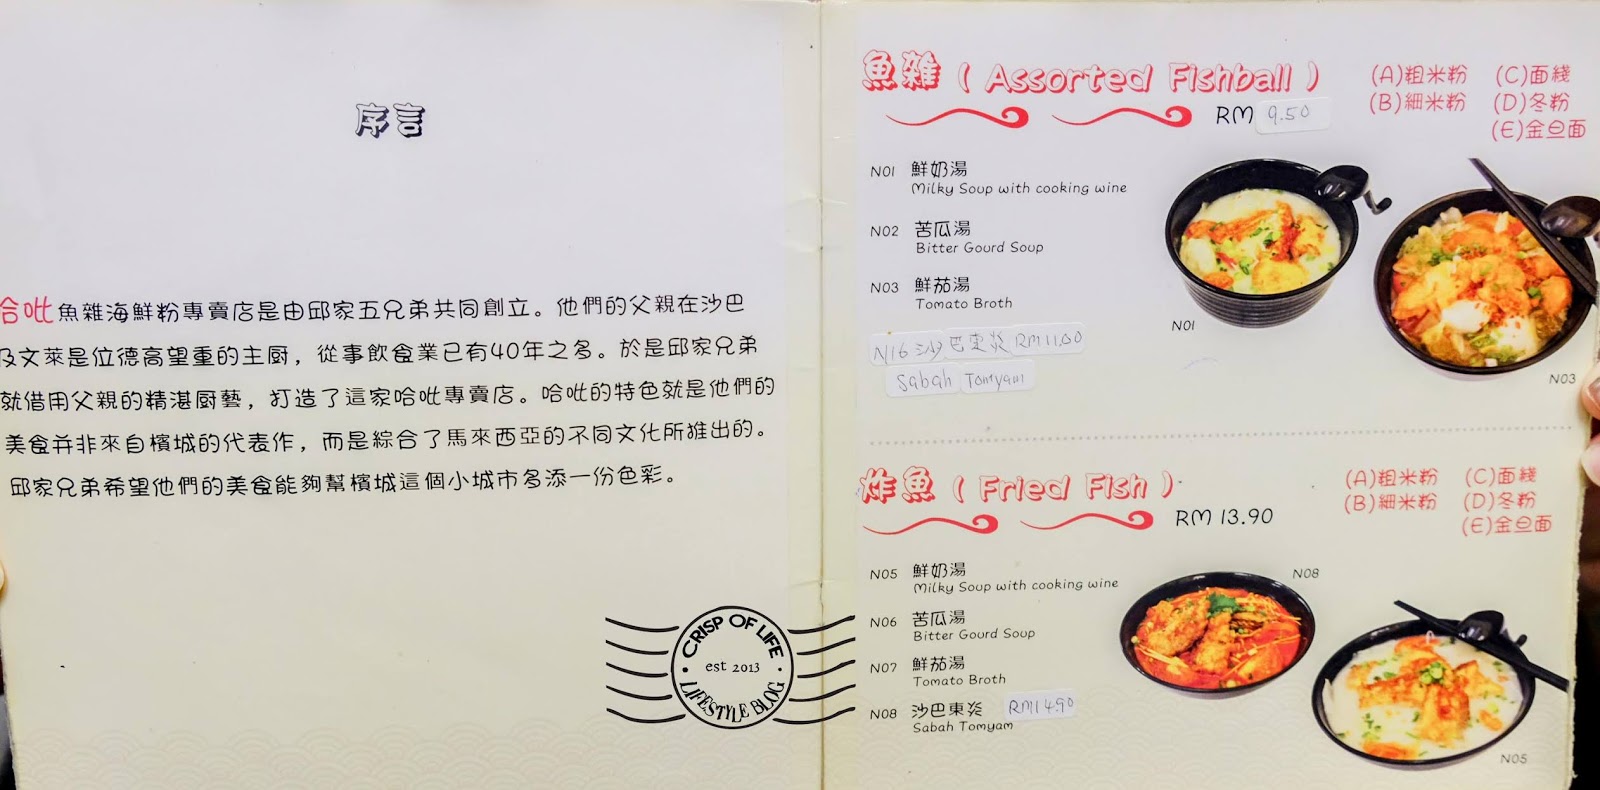 序言
哈吡魚雜海鮮粉專賣店是由邱家五兄弟共同創立。他們的父親在沙巴
及文萊是位德高望重的主厨，從事飲食業已有40年之多。於是邱家兄弟
就借用父親的精湛厨藝，打造了這家哈吡專賣店。哈吡的特色就是他們的
美食并非來自檳城的代表作，而是綜合了馬來西亞的不同文化所推出的。
邱家兄弟希望他們的美食能夠幫檳城這個小城市多添一份色彩。
CRISP OF LIFE
est 2013
LIFESTYLE BLOG
魚雜 ( Assorted Fishball )
RM 9.50
(A)粗米粉 (C)面綫
(B)細米粉 (D)冬粉
(E)金旦面
N01 鮮奶湯
Milky Soup with cooking wine
N02 苦瓜湯
Bitter Gourd Soup
N03 鮮茄湯
Tomato Broth
N16 沙巴東炎 RM11.00
Sabah Tomyam
N01
N03
炸魚 ( Fried Fish )
RM 13.90
(A)粗米粉 (C)面綫
(B)細米粉 (D)冬粉
(E)金旦面
N05 鮮奶湯
Milky Soup with cooking wine
N06 苦瓜湯
Bitter Gourd Soup
N07 鮮茄湯
Tomato Broth
N08 沙巴東炎 RM14.90
Sabah Tomyam
N08
N05